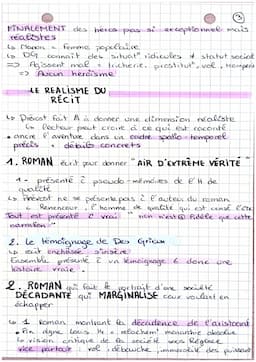 ③
FINALEMENT des héros pas si exceptionnel mais
réalistes
↳ Manon = femme populaire
↳ DG connaît des situat° ridicules ≠ statut social
=> Agissent mal = tricherie, prostitut°, vol,
=> Aucun héroïsme
LE REALISME DU
RÉCIT
↳ Prévost fait à donner une dimension réaliste
↳ lecteur peut croire à ce qui est raconté
• ancre l'aventure dans un cadre spatio-temporel
précis + détails concrets
1. ROMAN écrit pour donner "AIR D'EXTRÊME VÉRITÉ"
1 - présenté = pseudo-mémoires de l'H de
qualité
↳ Prévost ne se présente pas = auteur du roman
↳ Renoncour, l'homme de qualité qui est censé l'être
Tout est présenté = vrai "rien n'est Fidèle que cette
narration"
2. Le témoignage de Des Grieux
↳ récit enchâssé s'insère
Ensemble présenté = un témoignage & donne une
histoire vraie.
2. ROMAN qui fait le portrait d'une société
DÉCADANTE qui MARGINALISE ceux voulant en
échapper
↳ Roman montrant la décadence de l'aristocrat
↳ fin règne Louis 14 = relâchem° monarchie absolue
↳ vision critique de la société sous Régence
vice partout = vol, débauche, immoralité des puissants